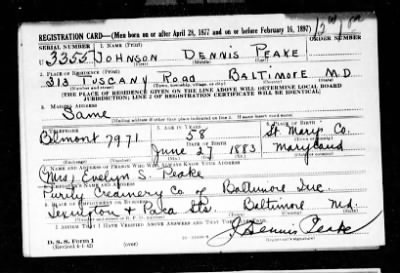 REGISTRATION CARD—(Men born on or after April 28, 1877 and on or before February 16, 1897)
SERIAL NUMBER 1. NAME (Print) ORDER NUMBER
U 3355 JOHNSON DENNIS PEAKE
2. PLACE OF RESIDENCE (Print)
213 TUSCANY ROAD BALTIMORE MD.
(THE PLACE OF RESIDENCE GIVEN ON THE LINE ABOVE WILL DETERMINE LOCAL BOARD
JURISDICTION; LINE 2 OF REGISTRATION CERTIFICATE WILL BE IDENTICAL)
3. MAILING ADDRESS
Same
[Mailing address if other than place indicated on line 2. If same insert word same]
4. TELEPHONE 5. AGE IN YEARS 6. PLACE OF BIRTH
Belmont 7971 58 St. Mary's Co.
DATE OF BIRTH
June 27 1883 Maryland
(Exchange) (Number) (Mo.) (Day) (Yr.) (State or country)
7. NAME AND ADDRESS OF PERSON WHO WILL ALWAYS KNOW YOUR ADDRESS
Mrs. Evelyn S. Peake
8. EMPLOYER'S NAME AND ADDRESS
Purity Creamery Co of Baltimore Inc.
9. PLACE OF EMPLOYMENT OR BUSINESS
Lexington + Paca Sts. Baltimore Md.
I AFFIRM THAT I HAVE VERIFIED ABOVE ANSWERS AND THAT THEY ARE TRUE.
D. S. S. Form 1 (over) J Dennis Peake
(Revised 4-1-42) (Registrant's signature)